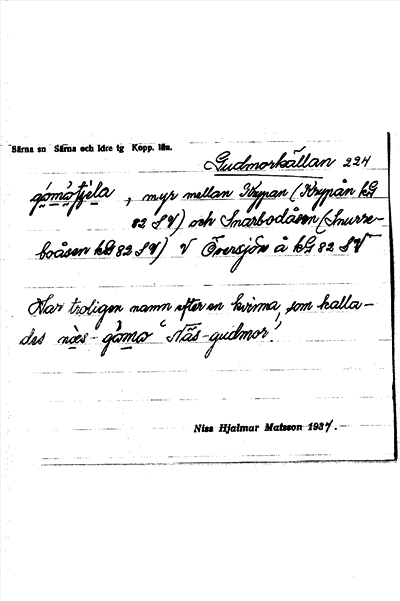 Särna sn Särna och Idre tg Kopp. län.
Gudmorkällan 224
gòmo̱tjela, myr mellan Krypan (Krypån kG
82 SV) och Snarbodåsen (Snurre-
boåsen kG 82 SV) V Översjön å kG 82 SV
Har troligen namn efter en kvinna, som kalla-
des nǟs-gòmo "Näs-gudmor".
Niss Hjalmar Matsson 1937.